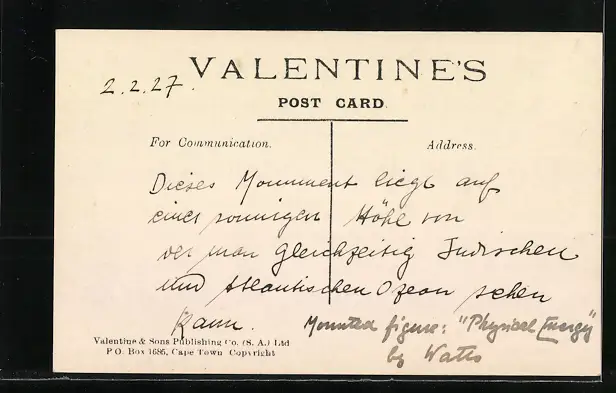 VALENTINE'S
2.2.27.
POST CARD.
For Communication.
Address.
Dieses Monument liegt auf
einer sonnigen Höhe von
der man gleichzeitig Indischen
und Atlantischen Ozean sehen
kann.
Mounted figure: "Physical Energy"
by Watts
Valentine & Sons Publishing Co. (S. A.) Ltd
P O. Box 1685, Cape Town Copyright